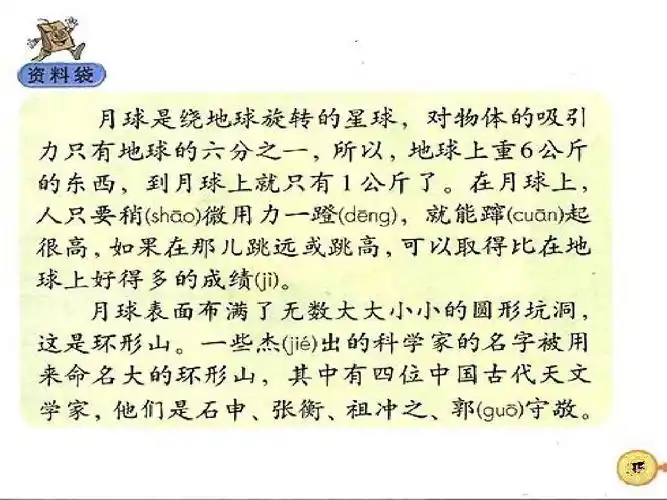 资料袋
月球是绕地球旋转的星球，对物体的吸引
力只有地球的六分之一，所以，地球上重6公斤
的东西，到月球上就只有1公斤了。在月球上，
人只要稍(shāo)微用力一蹬(dēng)，就能蹿(cuān)起
很高，如果在那儿跳远或跳高，可以取得比在地
球上好得多的成绩(jì)。
月球表面布满了无数大大小小的圆形坑洞，
这是环形山。一些杰(jié)出的科学家的名字被用
来命名大的环形山，其中有四位中国古代天文
学家，他们是石申、张衡、祖冲之、郭(guō)守敬。